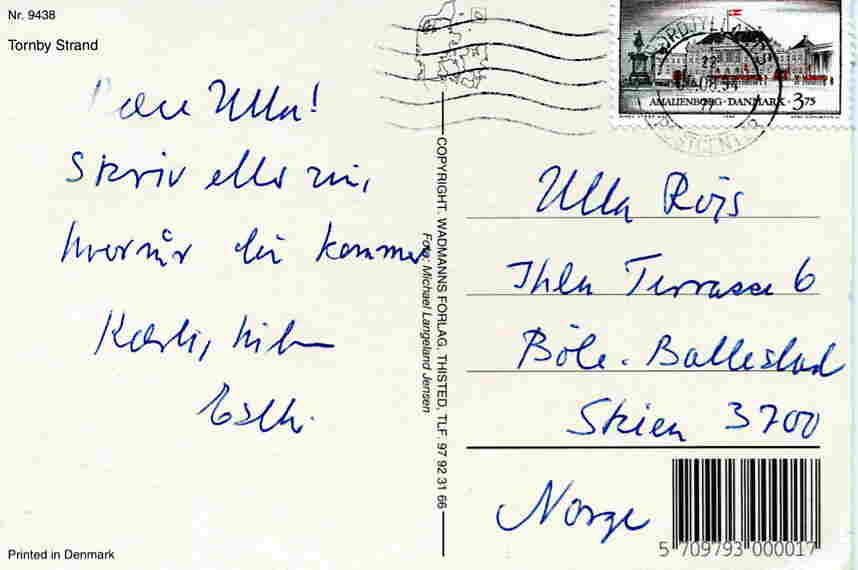 Nr. 9438
Tornby Strand
Kære Ulla!
Skriv eller ring
hvornår du kommer
Kærlig hilsen
COPYRIGHT. WADMANNS FORLAG, THISTED, TLF. 97 92 31 66
Foto: Michael Langeland Jensen
AMALIENBORG · DANMARK · 3.75
Ulla Röjs
Ihle Terrasse 6
Böle. Ballestad
Skien 3700
Norge
5 709793 000017
Printed in Denmark